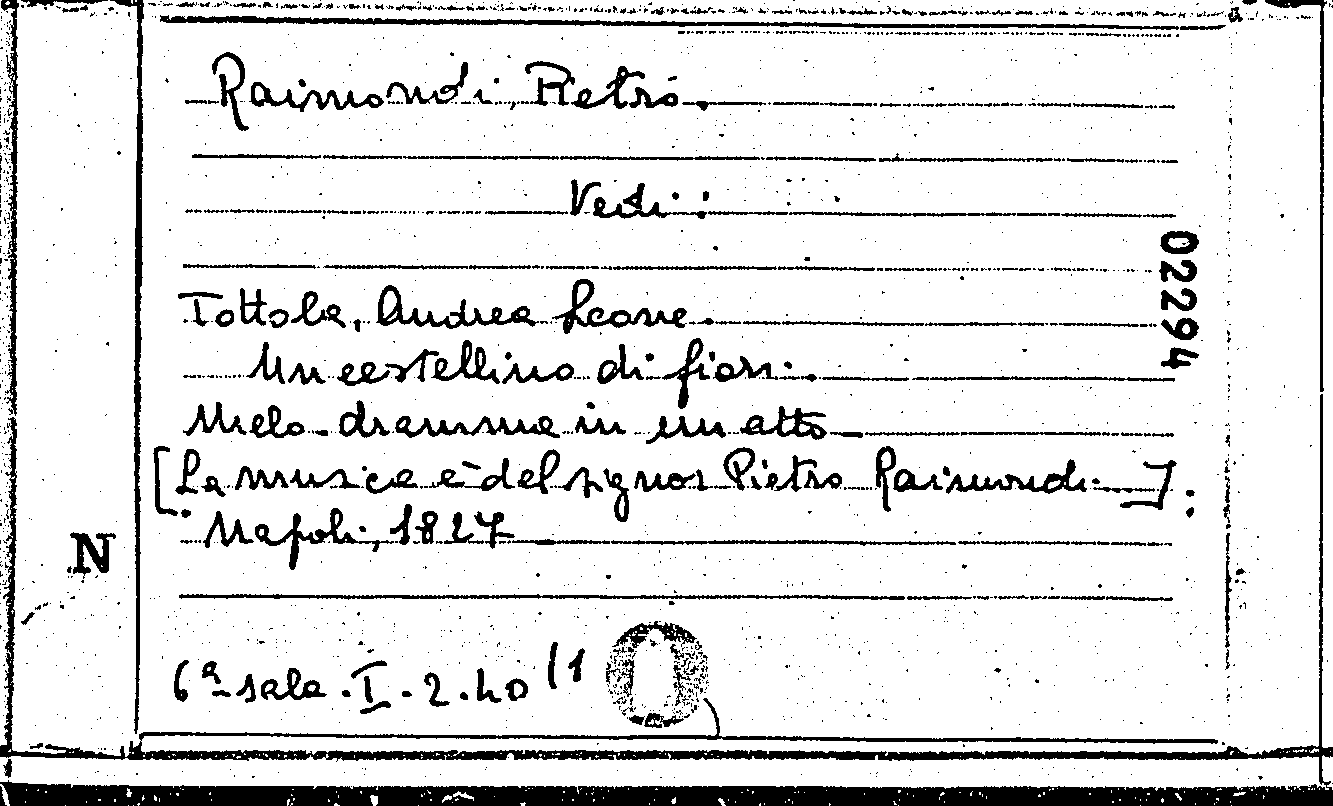 Raimondi, Pietro.
Vedi:
02294
Tottola, Andrea Leone.
Un cestellino di fiori.
Melo-dramma in un atto-
[La musica è del signor Pietro Raimondi-]:
Napoli, 1827
N
6ª sala. I. 2. 40 (1